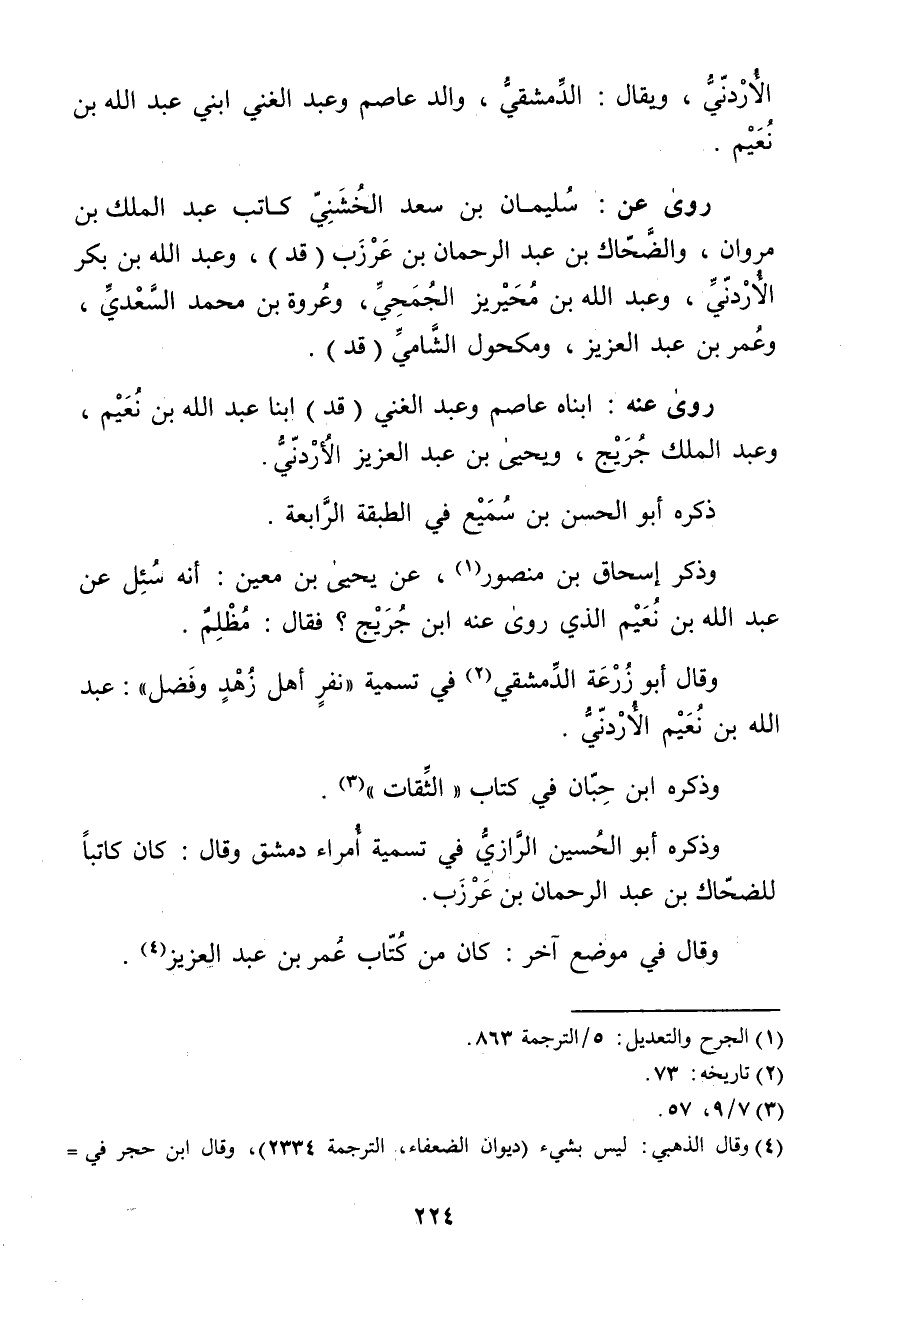 الأُرْدنّيُّ ، ويقال : الدِّمشقيُّ ، والد عاصم وعبد الغني ابني عبد الله بن
نُعَيْم .
روىٰ عن : سُليمـان بن سعد الخُشَنِيّ كـاتب عبد الملك بن
مروان ، والضَّحّاك بن عبد الرحمان بن عَرْزَب ( قد ) ، وعبد الله بن بكر
الأُرْدنّيِّ ، وعبد الله بن مُحَيْريز الجُمَحِيِّ، وعُروة بن محمد السَّعْديِّ ،
وعُمر بن عبد العزيز ، ومكحول الشَّاميِّ ( قد ) .
روىٰ عنه : ابناه عاصم وعبد الغني ( قد ) ابنا عبد الله بن نُعَيْم ،
وعبد الملك جُرَيْج ، ويحيىٰ بن عبد العزيز الأُرْدنّيُّ.
ذكره أبو الحسن بن سُمَيْع في الطبقة الرَّابعة .
وذكر إسحاق بن منصور(١) ، عن يحيىٰ بن معين : أنه سُئِل عن
عبد الله بن نُعَيْم الذي روىٰ عنه ابن جُرَيْج ؟ فقال : مُظْلِمٌ .
وقال أبو زُرْعَة الدِّمشقي(٢) في تسمية «نفرٍ أهل زُهْدٍ وفَضل» : عبد
الله بن نُعَيْم الأُرْدنّيُّ .
وذكره ابن حِبّان في كتاب « الثِّقات »(٣) .
وذكره أبو الحُسين الرَّازيُّ في تسمية أُمراء دمشق وقال : كان كاتباً
للضحّاك بن عبد الرحمان بن عَرْزَب.
وقال في موضع آخر : كان من كُتّاب عُمر بن عبد العزيز(٤) .
(١) الجرح والتعديل: ٥/الترجمة ٨٦٣.
(٢) تاريخه: ٧٣.
(٣) ٩/٧، ٥٧.
(٤) وقال الذهبي: ليس بشيء (ديوان الضعفاء، الترجمة ٢٣٣٤)، وقال ابن حجر في =
٢٢٤